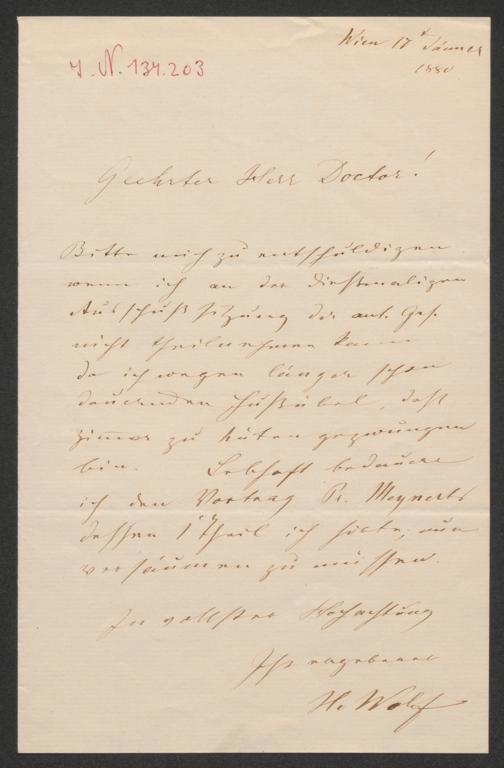 Wien 17t Jänner
1880
I. N. 134.203
Geehrter Herr Doctor!
Bitte mich zu entschuldigen
wenn ich an der dießmaligen
Ausschußsitzung der ant. Ges.
nicht theilnehmen kann
da ich wegen länger schon
dauernden Fußübel, daß
Zimmer zu hüten gezwungen
bin. Lebhaft bedauere
ich den Vortrag Pr. Meynerts
dessen 1ten Theil ich hörte, nun
versäumen zu müssen.
In vollster Hochachtung
Ihr ergebener
H. Wolf